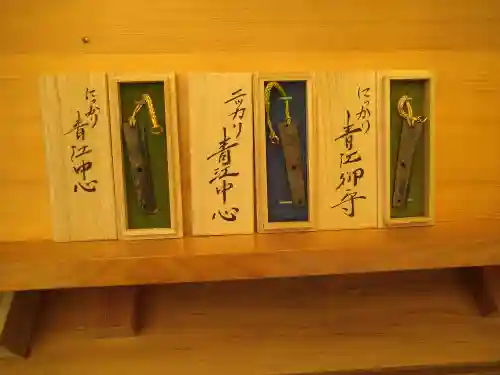 にっかり
青江中心
ニッカリ
青江中心
にっかり
青江御守